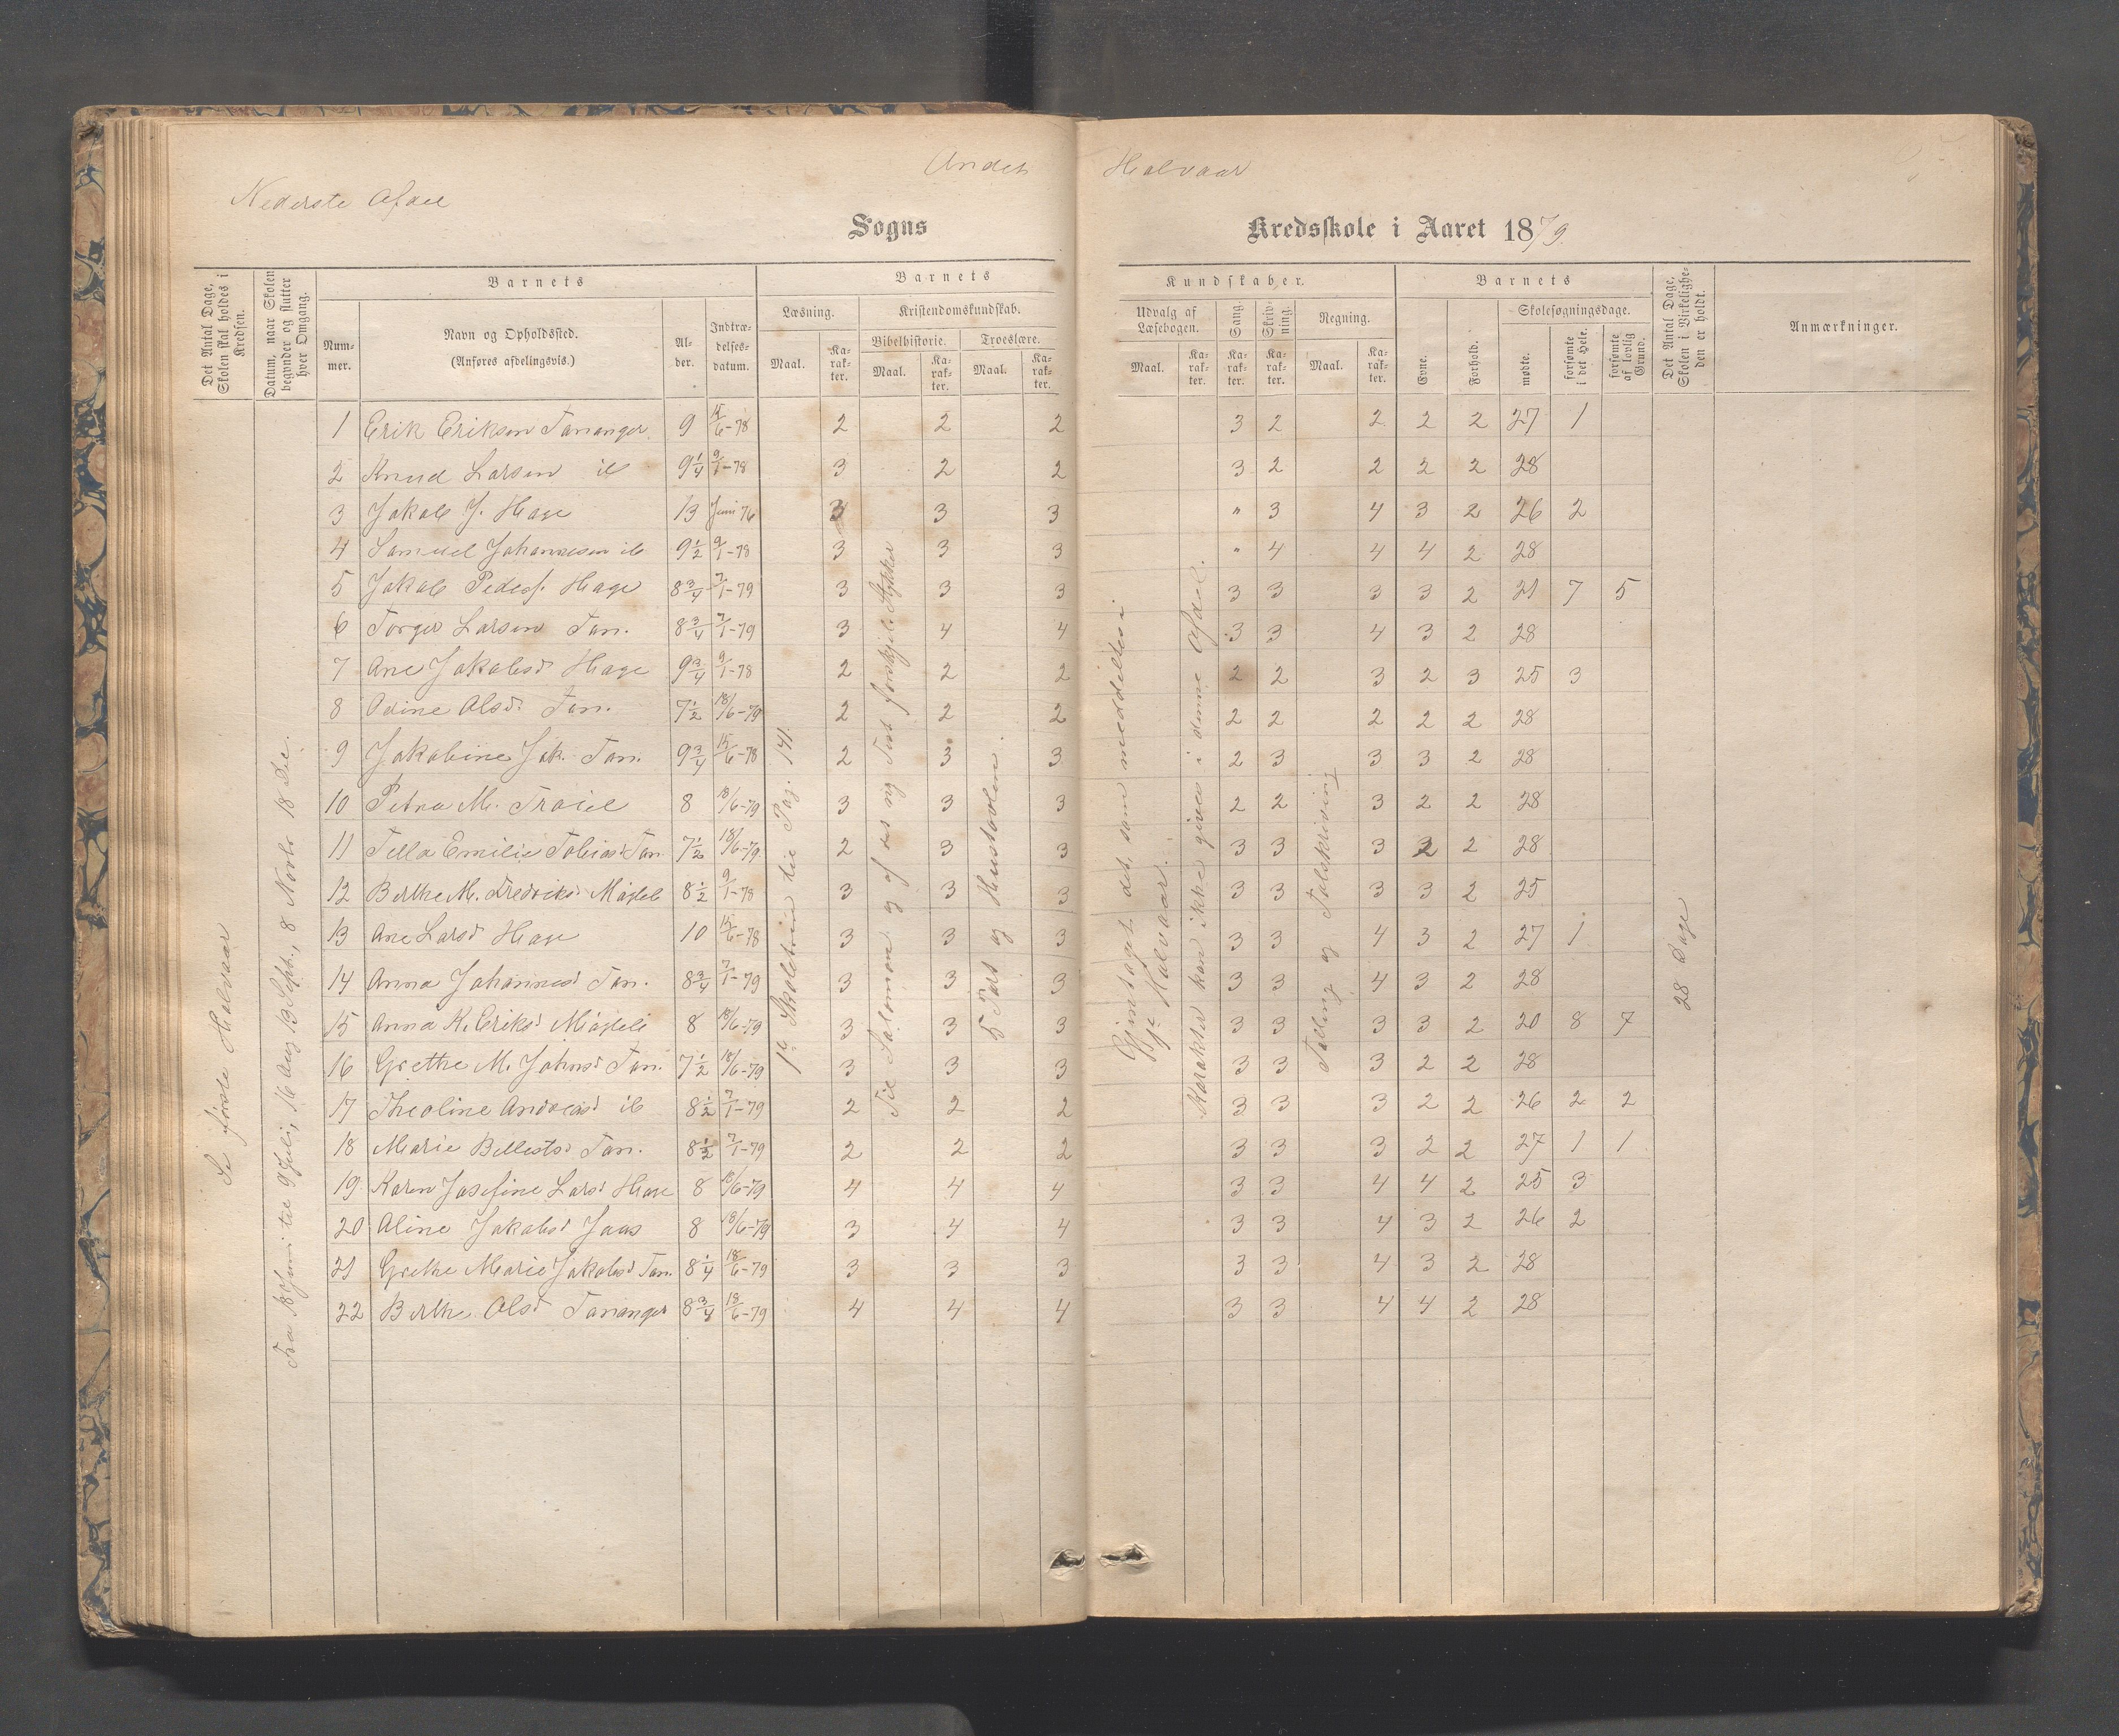 Andet Halvaar
Nederste Afdel
Sogns Kredsskole i Aaret 1879
Det Antal Dage, Skolen skal holdes i Kredsen.
Datum, naar Skolen begynder og slutter hver Omgang.
Barnets
Num-mer.
Navn og Opholdssted.
(Anføres afdelingsvis.)
Al-der.
Indtræ-delses-datum.
Barnets
Læsning.
Maal.
Ka-rak-ter.
Kristendomskundskab.
Bibelhistorie.
Maal.
Ka-rak-ter.
Troeslære.
Maal.
Ka-rak-ter.
Kundskaber.
Udvalg af Læsebogen.
Maal.
Ka-rak-ter.
Sang.
Ka-rak-ter.
Skriv-ning.
Ka-rak-ter.
Regning.
Maal.
Ka-rak-ter.
Barnets
Evne.
Forhold.
Skolesøgningsdage.
mødte.
forsømte i det Hele.
forsømte af lovlig Grund.
Det Antal Dage, Skolen i Virkelighe-den er holdt.
Anmærkninger.
Se første Halvaar
Fra 18 Juni til 9 Juli, 16 Aug. 13 Sept., 8 Novbr 18 Dec.
1ste Skoletrin til Pag. 141.
Til Salomon og af det ny Test forskjell. Stykker
5 Part og Hustavlen.
Gjentaget det, som meddeltes i
Halvaar.
Karakter kan ikke gives i denne Afdel.
Tælling og Talskrivning
28 Dage
1 Erik Eriksen Tananger 9 15/6-78 2 2 2 3 2 2 2 2 27 1
2 Knud Larsen ib 9 1/4 9/1-78 3 2 2 3 2 2 2 2 28
3 Jakob J. Hage 13 Juni 76 3 3 3 " 3 4 3 2 26 2
4 Samuel Johannesen ib 9 1/2 9/1-78 3 3 3 " 4 4 4 2 28
5 Jakob Peders. Hage 8 3/4 7/1-79 3 3 3 3 3 3 3 2 21 7 5
6 Torger Larsen Tan. 8 3/4 7/1-79 3 4 4 3 3 4 3 2 28
7 Ane Jakobsd Hage 9 3/4 9/1-78 2 2 2 2 2 3 2 3 25 3
8 Odine Olsd. Tan. 7 1/2 18/6-79 2 2 2 2 2 2 2 2 28
9 Jakobine Jak. Tan. 9 3/4 15/6-78 2 3 3 2 3 3 3 2 28
10 Petra M. Troiel 8 18/6-79 3 3 3 2 2 3 2 2 28
11 Tella Emilie Tobiasd Tan 7 1/2 18/6-79 2 3 3 3 3 3 2 2 28
12 Berthe M. Fredriksd Møgleb 8 1/2 9/1-78 3 3 3 3 3 3 3 2 25
13 Ane Larsd Hage 10 15/6-78 3 3 3 3 3 4 3 2 27 1
14 Anna Johannesd Tan. 8 3/4 7/1-79 3 3 3 3 3 4 3 2 28
15 Anna K. Eriksd Møgleb 8 18/6-79 3 3 3 3 3 3 3 2 20 8 7
16 Grethe M. Johnsd Tan. 7 1/2 18/6-79 3 3 3 3 3 3 2 2 28
17 Theoline Andreasd ib 8 1/2 7/1-79 2 2 2 3 3 3 2 2 26 2 2
18 Marie Bellestsd Tan. 8 1/2 7/1-79 2 2 2 3 3 3 2 2 27 1 1
19 Karen Josefine Larsd Hage 8 18/6-79 4 4 4 3 3 4 4 2 25 3
20 Aline Jakobsd Jaas 8 18/6-79 3 4 4 3 3 4 3 2 26 2
21 Grethe Marie Jakobsd Tan. 8 1/4 18/6-79 3 3 3 3 3 4 3 2 28
22 Berthe Olsd Tananger 8 3/4 18/6-79 4 4 4 3 3 4 4 2 28